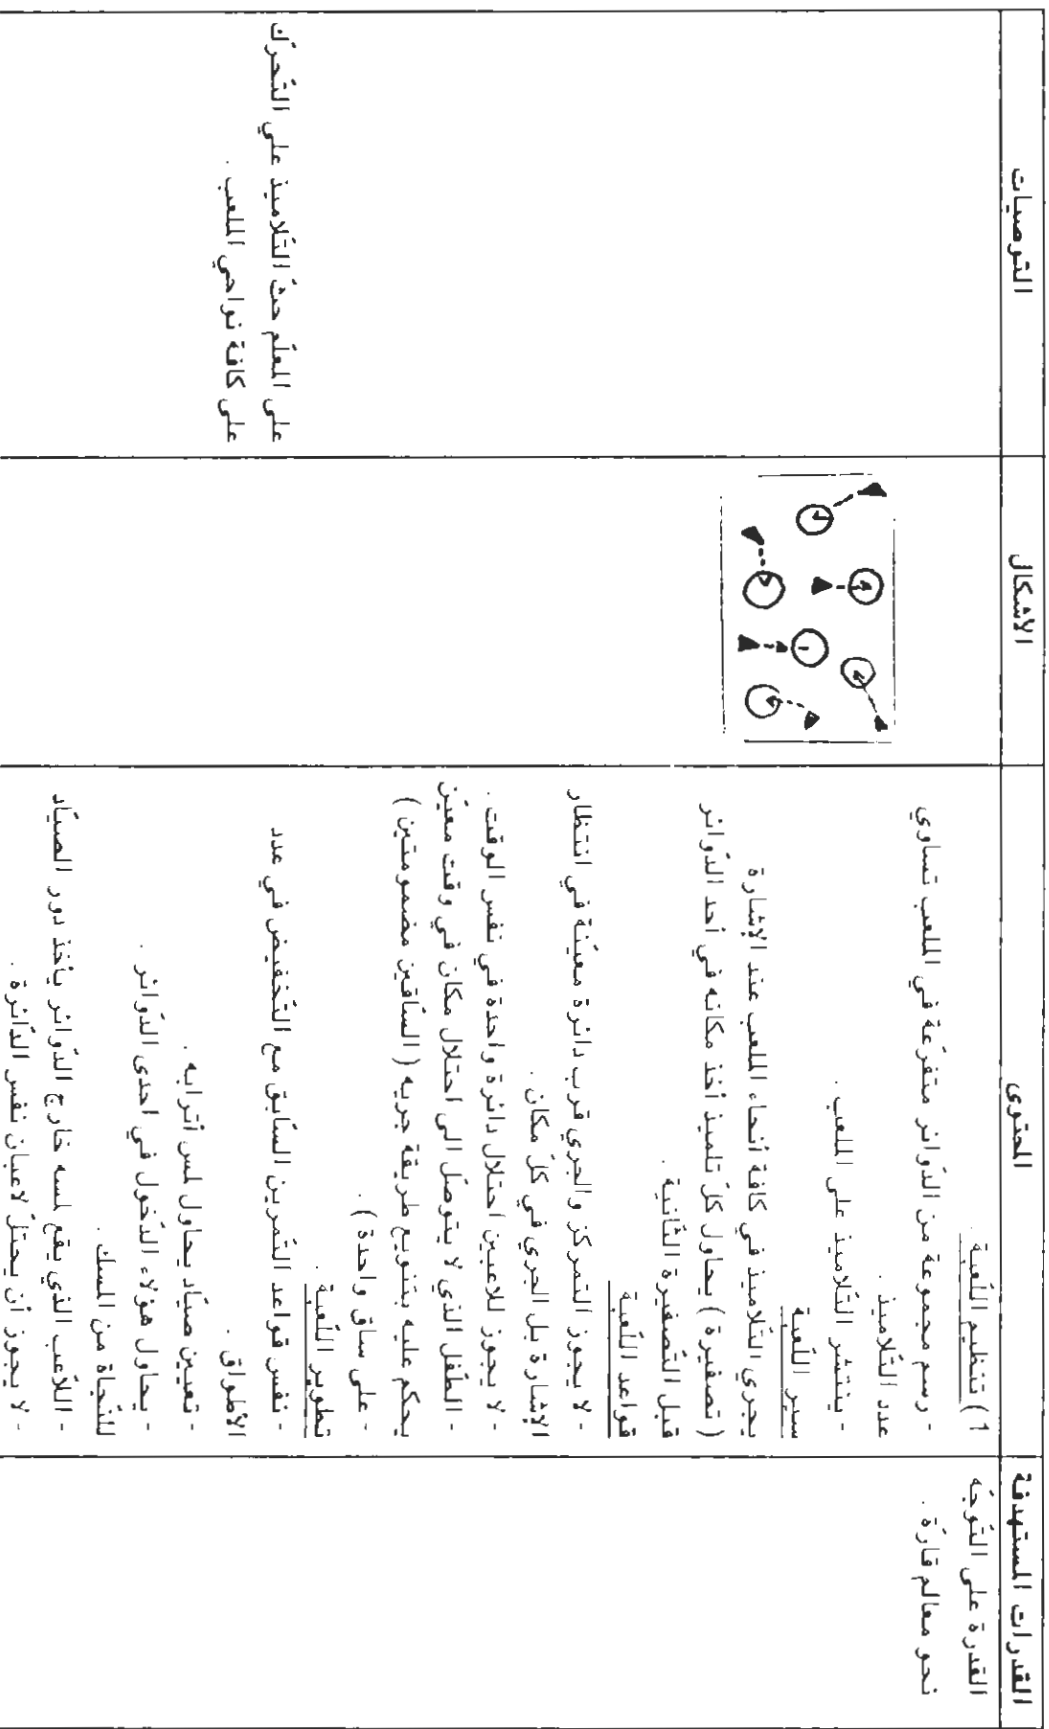 القدرات المستهدفة
المحتوى
الأشكال
التوصيات
القدرة على التّوجّه
نحو معالم قارّة .
1 ) تنظيم اللّعبة
- رسم مجموعة من الدّوائر متفرّعة في الملعب تساوي
عدد التّلاميذ .
- ينتشر التّلاميذ على الملعب .
سير اللّعبة
يجري التّلاميذ في كافة أنحاء الملعب عند الإشارة
( تصفيرة ) يحاول كلّ تلميذ أخذ مكانه في أحد الدّوائر
قبل التّصفيرة الثّانية .
قواعد اللّعبة
- لا يجوز التمركز والجري قرب دائرة معيّنة في انتظار
الإشارة بل الجري في كلّ مكان .
- لا يجوز للاعبين احتلال دائرة واحدة في نفس الوقت .
- الطّفل الذي لا يتوصّل الى احتلال مكان في وقت معيّن
يحكم عليه بتنويع طريقة جريه ( السّاقين مضمومتين )
- على ساق واحدة ) .
تطوير اللّعبة .
- نفس قواعد التّمرين السّابق مع التّخفيض في عدد
الأطواق .
- تعيين صيّاد يحاول لمس أترابه .
- يحاول هؤلاء الدّخول في احدى الدّوائر .
للنّجاة من المسك .
- اللاّعب الذي يقع لمسه خارج الدّوائر يأخذ دور الصيّاد
- لا يجوز أن يحتلّ لاعبان نفس الدّائرة .
على المعلّم حثّ التّلاميذ علي التّحرّك
على كافة نواحي الملعب .